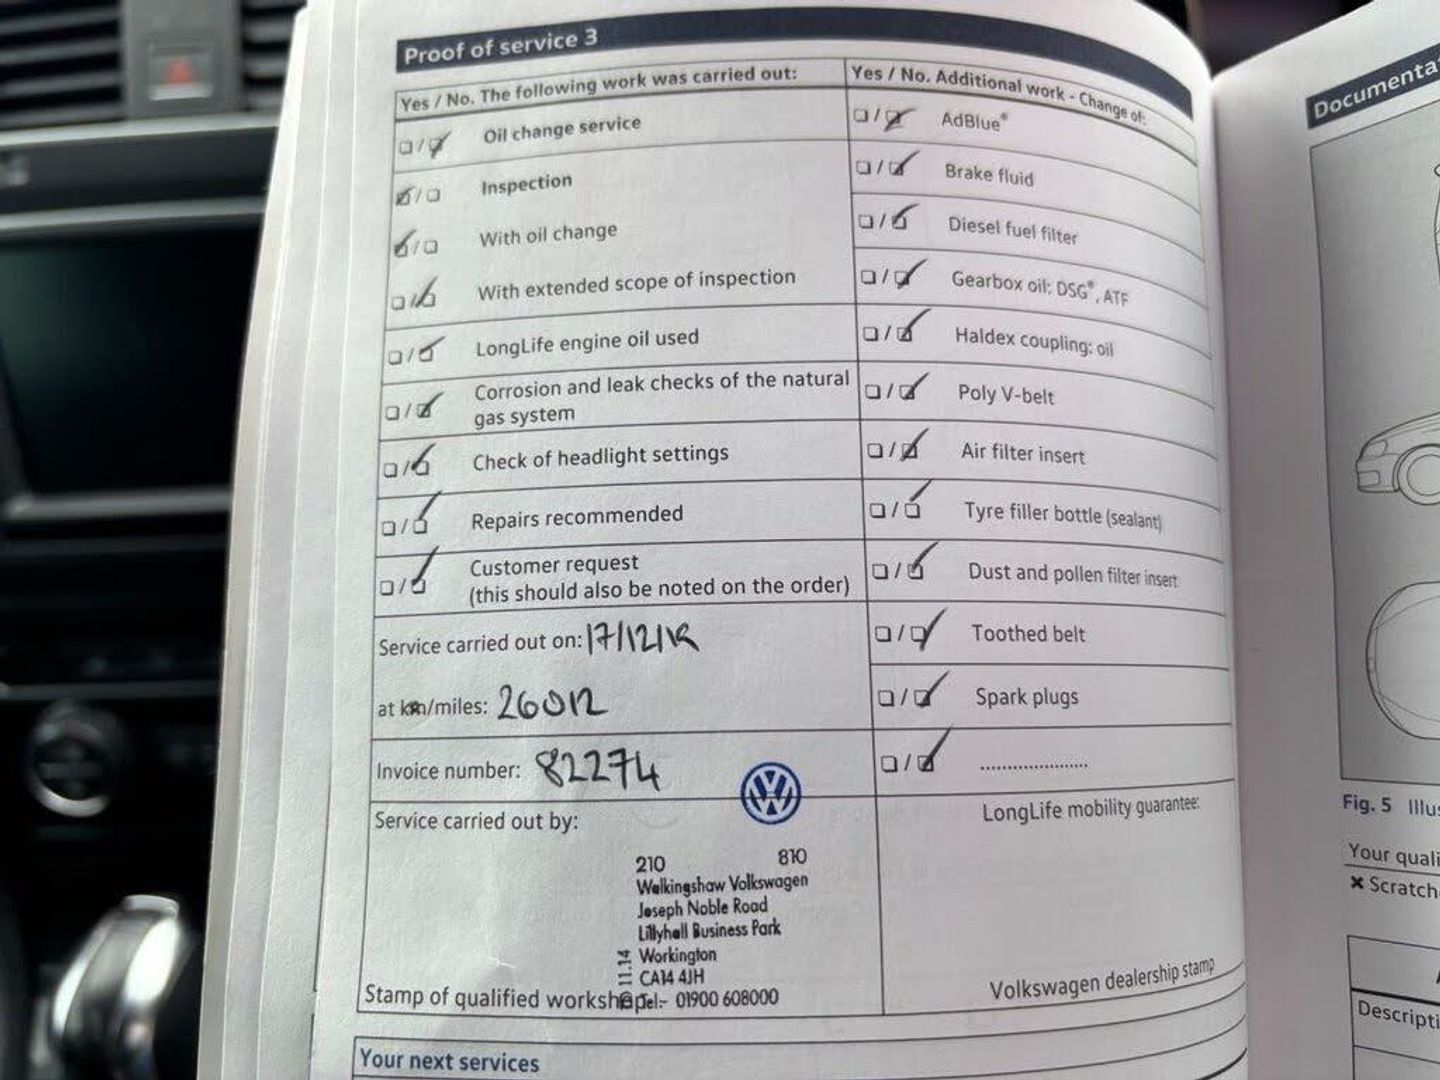 Proof of service 3
Yes / No. The following work was carried out:
Oil change service
Inspection
With oil change
With extended scope of inspection
LongLife engine oil used
Corrosion and leak checks of the natural
gas system
Check of headlight settings
Repairs recommended
Customer request
(this should also be noted on the order)
Service carried out on: 17/12/18
at km/miles: 26012
Invoice number: 82274
Service carried out by:
210 810
Walkingshaw Volkswagen
Joseph Noble Road
Lillyhall Business Park
Workington
CA14 4JH
Tel:- 01900 608000
11.14
Stamp of qualified workshop
Yes / No. Additional work - Change of:
AdBlue®
Brake fluid
Diesel fuel filter
Gearbox oil: DSG®, ATF
Haldex coupling: oil
Poly V-belt
Air filter insert
Tyre filler bottle (sealant)
Dust and pollen filter insert
Toothed belt
Spark plugs
....................
LongLife mobility guarantee:
Volkswagen dealership stamp
Your next services
Documenta
Fig. 5 Illus
Your quali
× Scratch
Descripti